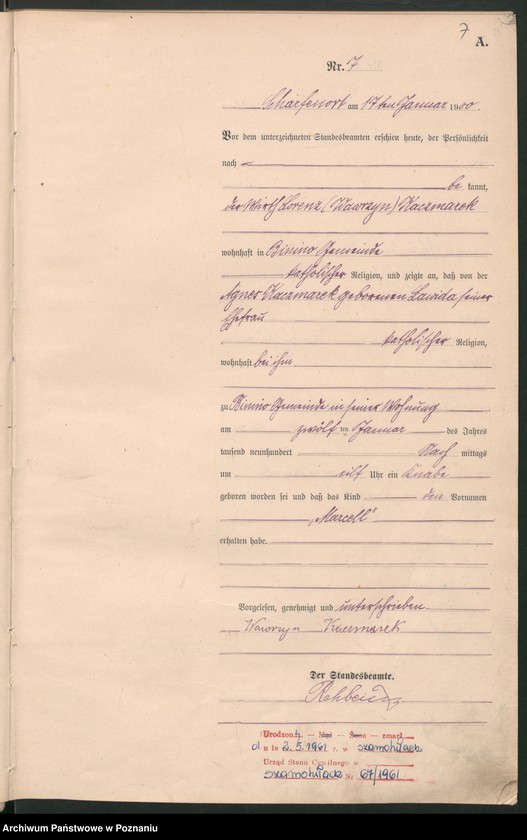 7
A.
Nr. 7
Scharfenort am 17ten Januar 1900.
Vor dem unterzeichneten Standesbeamten erschien heute, der Persönlichkeit
nach
be kannt,
der Wirth Lorenz (Wawrzyn) Kaczmarek
wohnhaft in Binino Gemeinde
katholischer Religion, und zeigte an, daß von der
Agnes Kaczmarek geborenen Lawida seiner
Ehefrau
katholischer Religion,
wohnhaft bei ihm
zu Binino Gemeinde in seiner Wohnung
am zwölf ten Januar des Jahres
tausend neunhundert Nach mittags
um eilf Uhr ein Knabe
geboren worden sei und daß das Kind den Vornamen
„Marcell“
erhalten habe.
Vorgelesen, genehmigt und unterschrieben
Wawrzyn Kaczmarek
Der Standesbeamte.
Rehbein
Urodzon — — Żona — zmarł
dnia 2.5.1961 r. w Szamotułach
Urząd Stanu Cywilnego w
Szamotułach Nr 67/1961
Archiwum Państwowe w Poznaniu